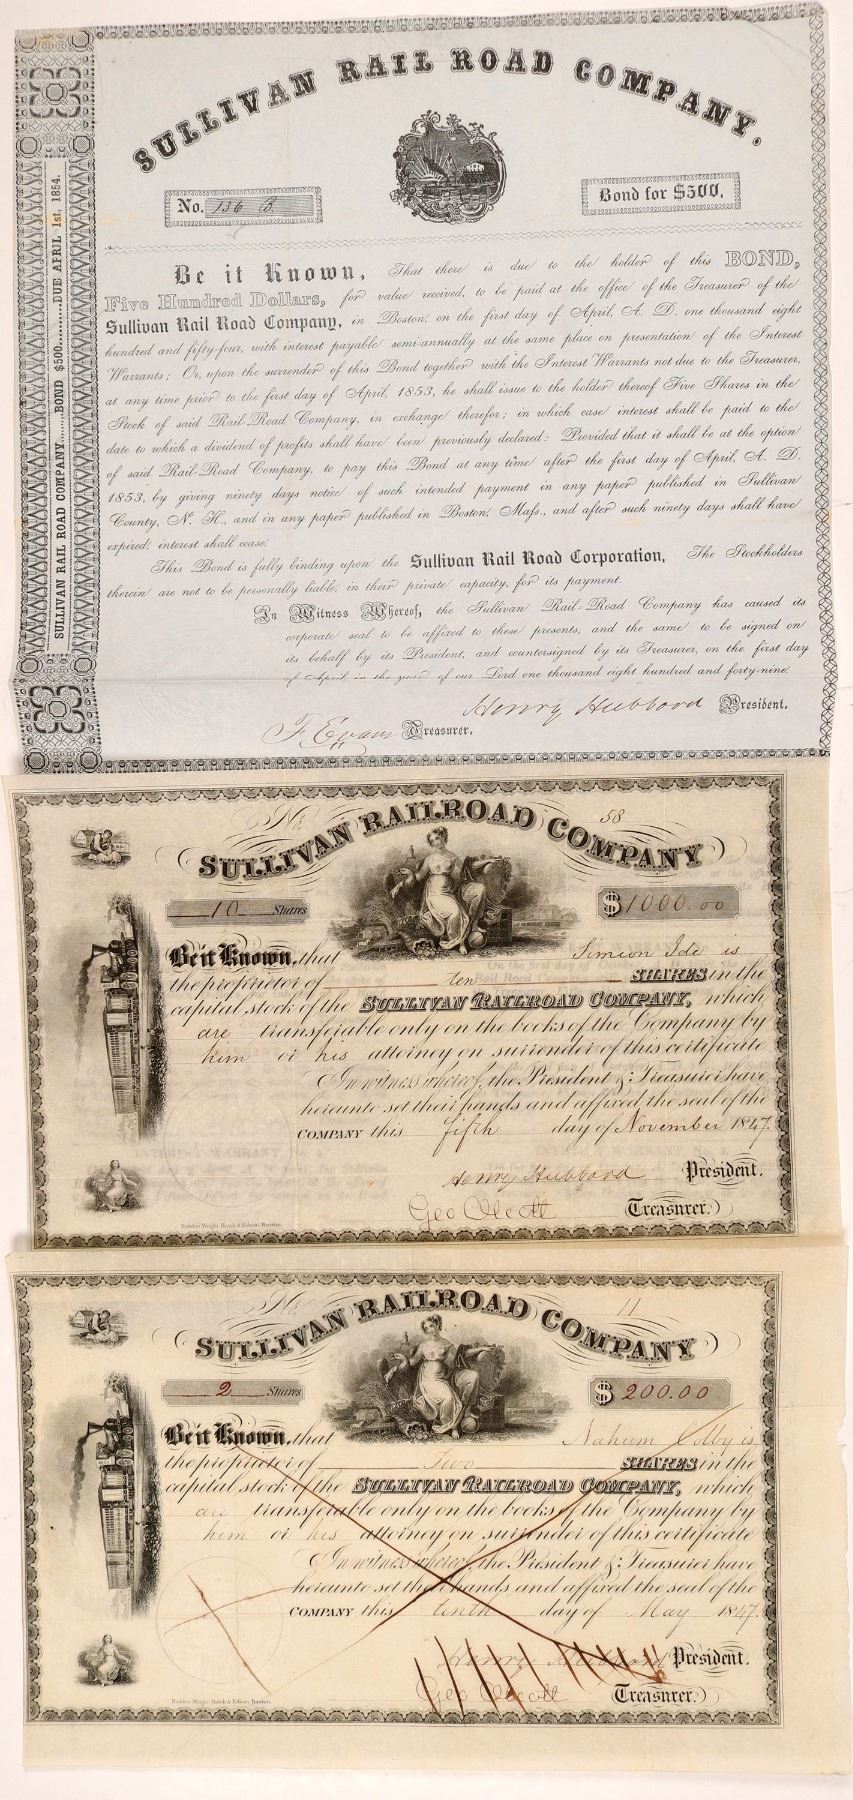 SULLIVAN RAIL ROAD COMPANY.
No. 136 B.
Bond for $500.
SULLIVAN RAIL ROAD COMPANY........BOND $500..........DUE APRIL 1st, 1854.
Be it Known, That there is due to the holder of this BOND,
Five Hundred Dollars, for value received, to be paid at the office of the Treasurer of the
Sullivan Rail Road Company, in Boston, on the first day of April, A. D. one thousand eight
hundred and fifty-four, with interest payable semi-annually at the same place on presentation of the Interest
Warrants; Or, upon the surrender of this Bond together with the Interest Warrants not due to the Treasurer,
at any time prior to the first day of April, 1853, he shall issue to the holder thereof Five Shares in the
Stock of said Rail-Road Company, in exchange therefor; in which case interest shall be paid to the
date to which a dividend of profits shall have been previously declared: Provided that it shall be at the option
of said Rail-Road Company, to pay this Bond at any time after the first day of April, A. D.
1853, by giving ninety days notice of such intended payment in any paper published in Sullivan
County, N. H., and in any paper published in Boston, Mass., and after such ninety days shall have
expired, interest shall cease.
This Bond is fully binding upon the Sullivan Rail Road Corporation, The Stockholders
therein are not to be personally liable, in their private capacity, for its payment.
In Witness Whereof, the Sullivan Rail-Road Company has caused its
corporate seal to be affixed to these presents, and the same to be signed on
its behalf by its President, and countersigned by its Treasurer, on the first day
of April in the year of our Lord one thousand eight hundred and forty-nine.
Henry Hubbard President.
F. Evans Treasurer.
No. 58
SULLIVAN RAILROAD COMPANY
10 Shares
$1000.00
Be it Known, that Simeon Ide is
the proprietor of ten SHARES in the
capital stock of the SULLIVAN RAILROAD COMPANY, which
are transferable only on the books of the Company by
him or his attorney on surrender of this certificate
In witness whereof, the President & Treasurer have
hereunto set their hands and affixed the seal of the
COMPANY this fifth day of November 1847.
Henry Hubbard President.
Geo Olcott Treasurer.
Rawdon, Wright, Hatch & Edson, Boston.
No. 11
SULLIVAN RAILROAD COMPANY
2 Shares
$ 200.00
Be it Known, that Nahum Colby is
the proprietor of Two SHARES in the
capital stock of the SULLIVAN RAILROAD COMPANY, which
are transferable only on the books of the Company by
him or his attorney on surrender of this certificate
In witness whereof, the President & Treasurer have
hereunto set their hands and affixed the seal of the
COMPANY this tenth day of May 1847.
Henry Hubbard President.
Geo Olcott Treasurer.
Rawdon, Wright, Hatch & Edson, Boston.